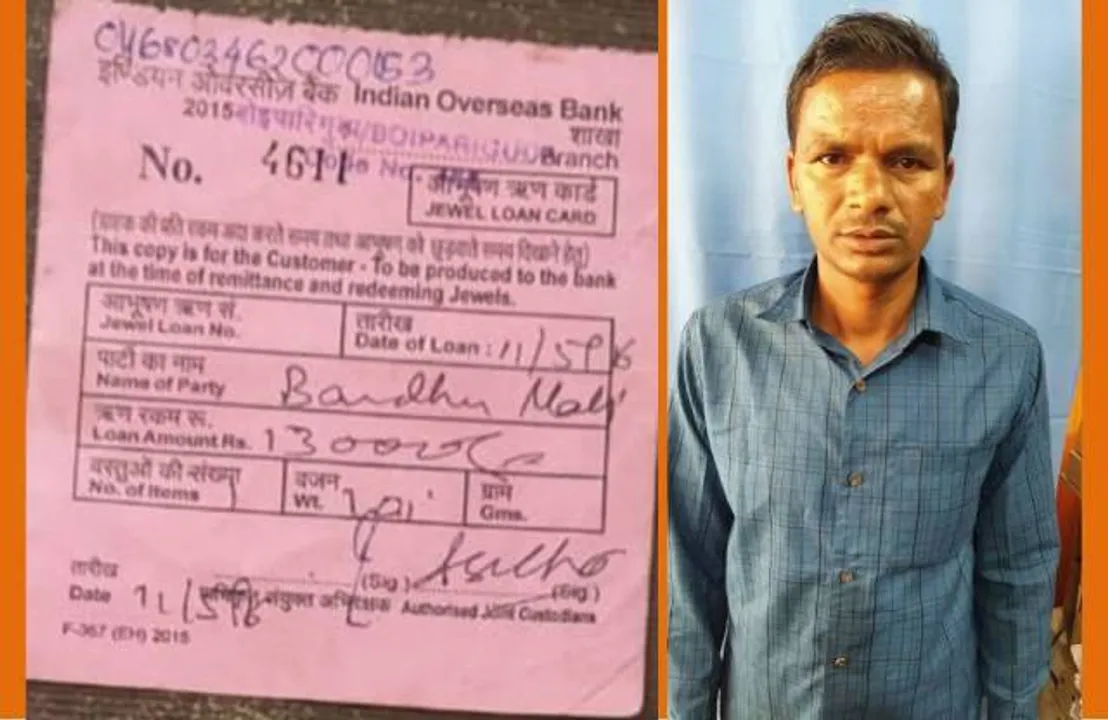 046803462000153
इण्डियन ओवरसीज़ बैंक Indian Overseas Bank
2015 बोइपारिगुडा/BOIPARIGUDA शाखा
Branch
No. 4611
आभूषण ऋण कार्ड
JEWEL LOAN CARD
This copy is for the Customer - To be produced to the bank
at the time of remittance and redeeming Jewels.
आभूषण ऋण सं.
Jewel Loan No.
तारीख
Date of Loan :
पार्टी का नाम
Name of Party Bandhu Mali
ऋण रकम रू.
Loan Amount Rs. 13000
वस्तुओं की संख्या
No. of Items
वजन
Wt.
ग्राम
Gms.
(Sig.) (Sig.)
तारीख
Date
संयुक्त अभिरक्षक Authorised Joint Custodians
F-367 (EH) 2015